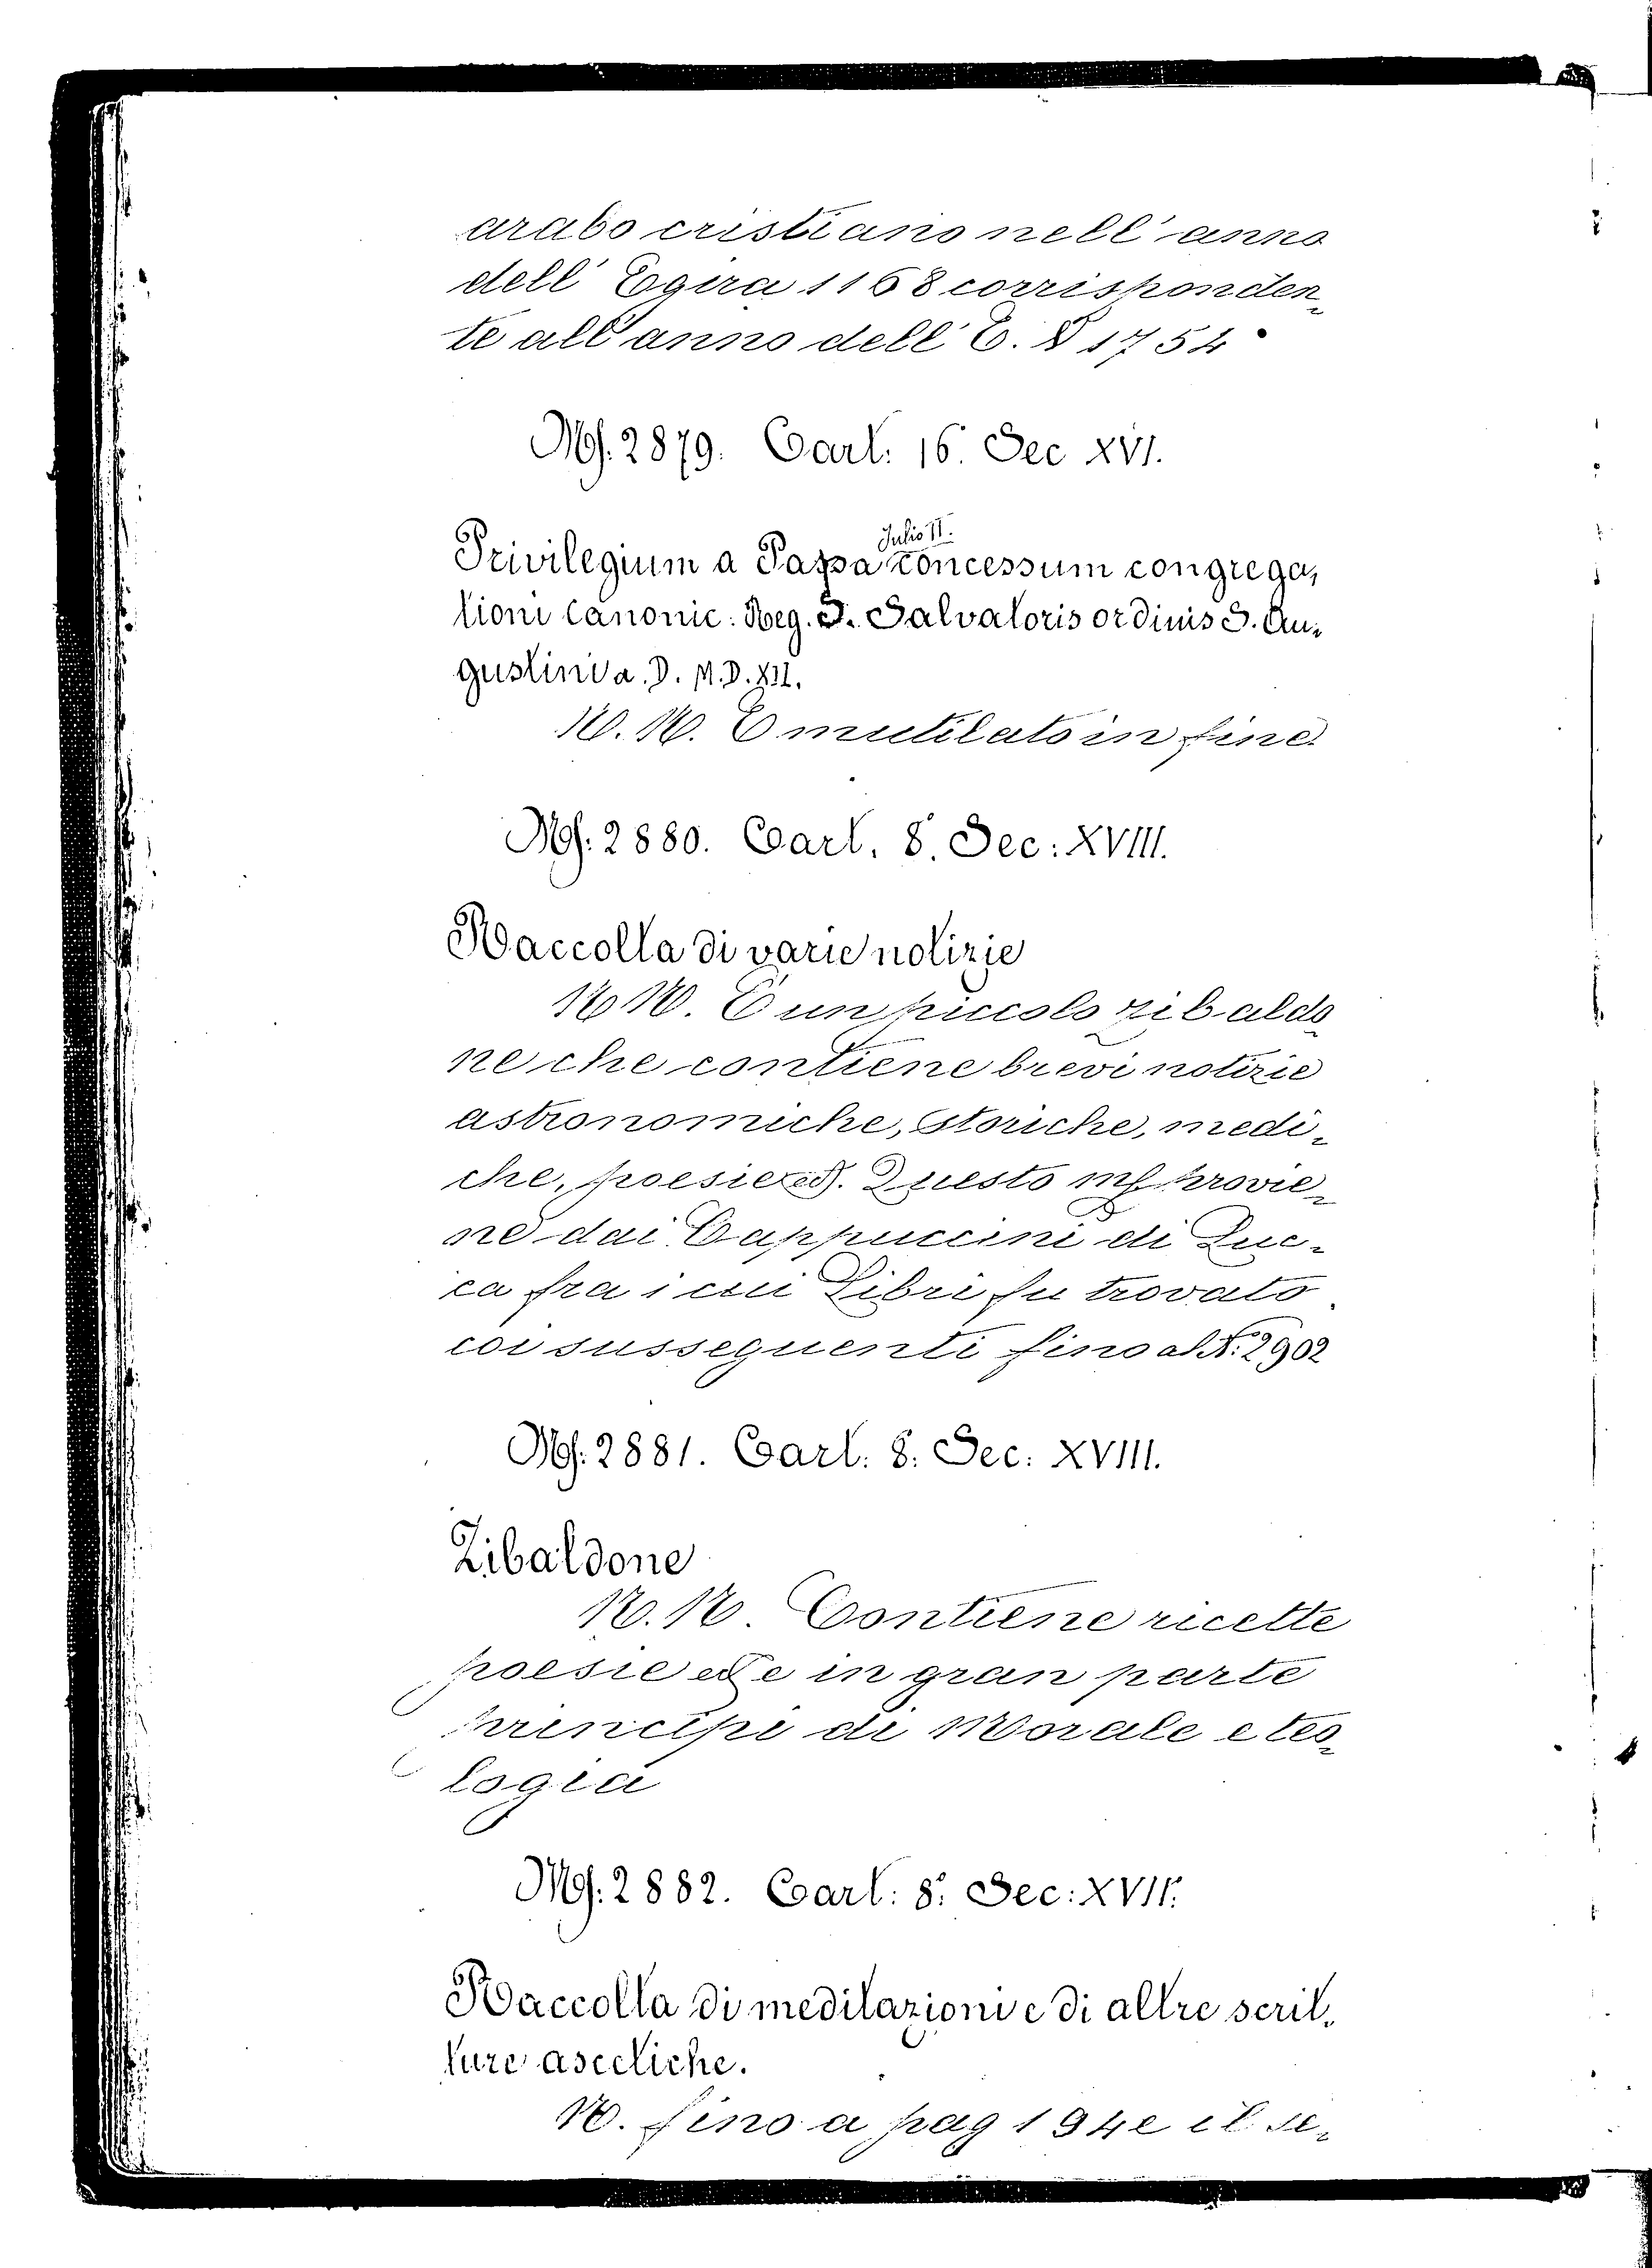 arabo cristiano nell'anno
dell'Egira 1168 corrisponden-
te all'anno dell'E. V 1754
Ms. 2879. Cart: 16. Sec XVI.
Privilegium a Papa Julio II. concessum congrega-
tioni canonic: Reg. S. Salvatoris ordinis S. Au-
gustini a. D. M.D.XII.
N. N. È mutilato in fine.
Ms. 2880. Cart. 8. Sec: XVIII.
Raccolta di varie notizie
N N. È un piccolo zibaldo
ne che contiene brevi notizie
astronomiche, storiche, medi-
che, poesie ec. Questo ms provie-
ne dai Cappuccini di Luc-
ca fra i cui Libri fu trovato
coi susseguenti fino al N: 2902
Ms: 2881. Cart: 8: Sec: XVIII.
Zibaldone
N. N. Contiene ricette
poesie ec e in gran parte
principi di Morale e teo-
logia
Ms: 2882. Cart: 8: Sec: XVII.
Raccolta di meditazioni e di altre scrit-
ture ascetiche.
N. fino a pag 194 e il se-